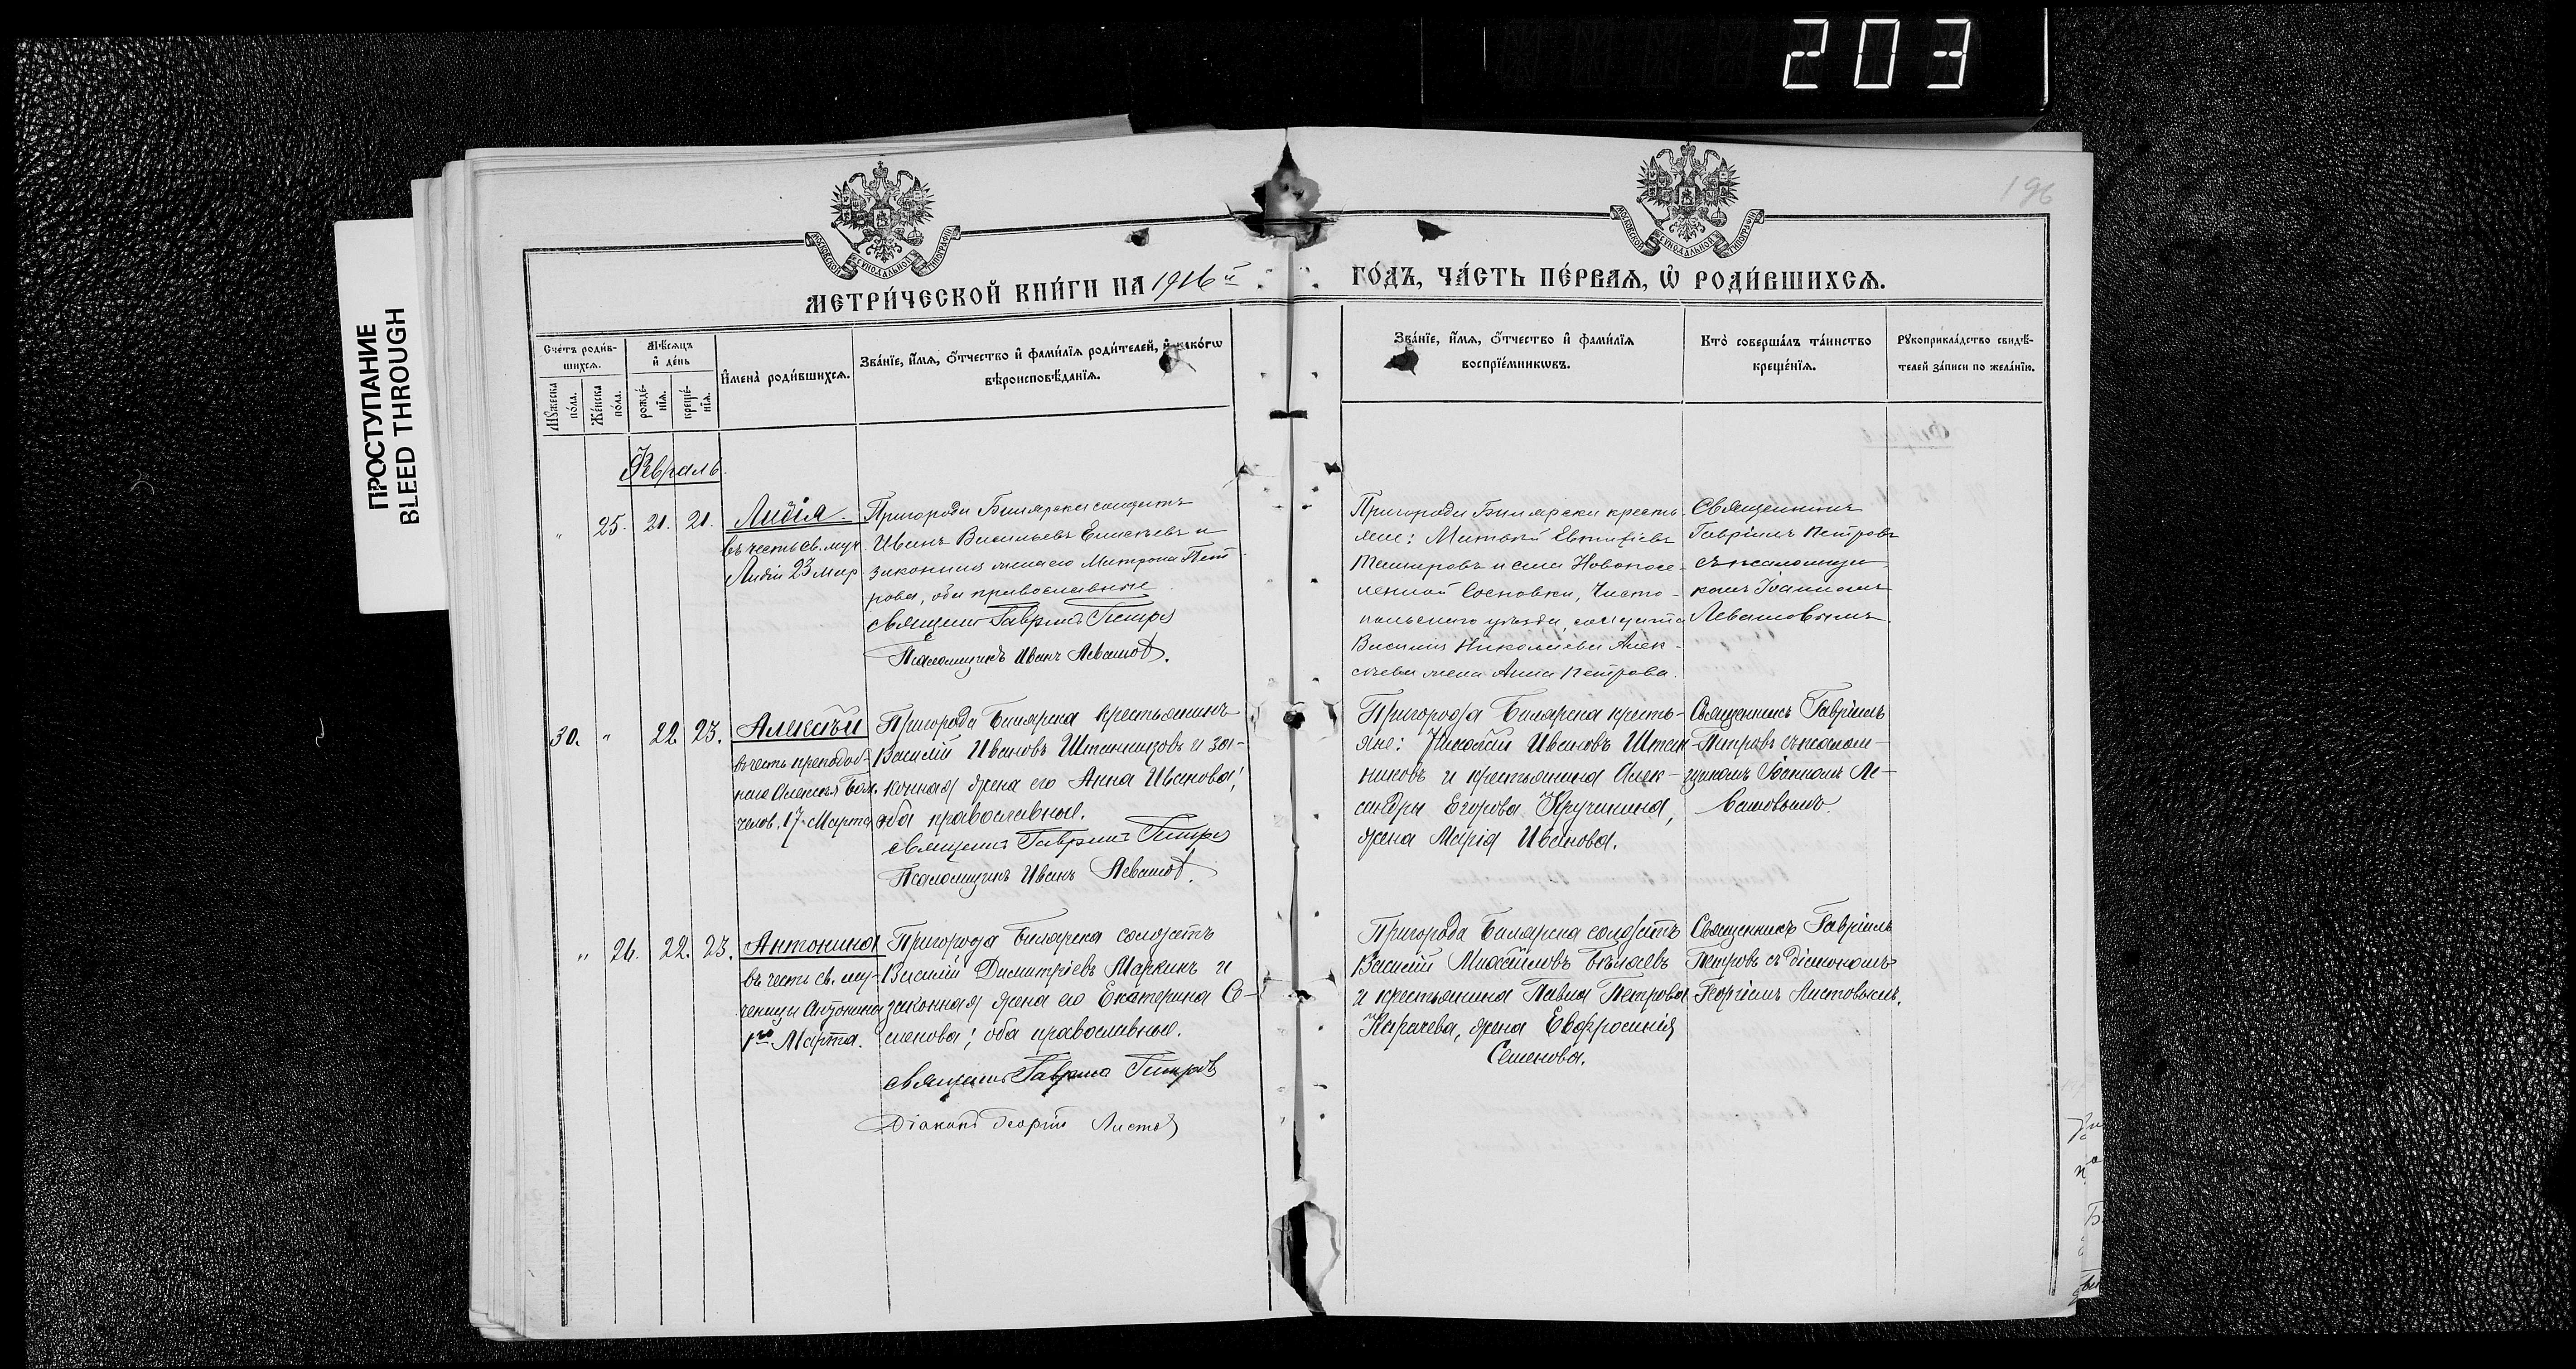 203
ПРОСТУПАНИЕ
BLEED THROUGH
196
МОСКОВСКОЙ СѴНОДАЛЬНОЙ ТИПОГРАФІИ
МОСКОВСКОЙ СѴНОДАЛЬНОЙ ТИПОГРАФІИ
МЕТРИ́ЧЕСКОЙ КНИ́ГИ НА 1916й
ГО́ДЪ, ЧА́СТЬ ПЕ́РВАЯ, Ѡ РОДИ́ВШИХСѦ.
Сче́тъ роди́в-
шихсѧ.
Мꙋ́жеска
по́ла.
Же́нска
по́ла.
Мѣ́сѧцъ
и҆ де́нь
рожде́-
нїѧ.
креще́-
нїѧ.
И҆мена̀ роди́вшихсѧ.
Зва́нїе, и҆́мѧ, ѻ҆́тчество и҆ фамѝлїѧ роди́телей, и҆ како́гѡ
вѣроисповѣ́данїѧ.
Зва́нїе, и҆́мѧ, ѻ҆́тчество и҆ фамѝлїѧ
воспрїе́мникѡвъ.
Кто̀ соверша́лъ та́инство
креще́нїѧ.
Рꙋкоприкла́дство свидѣ́-
телей за́писи по жела́нїю.
Февраль
" 25. 21. 21.
Лидія
въ честь св. муч.
Лидіи 23 мар.
Пригорода Билярска солдатъ
Иванъ Васильевъ Елисѣевъ и
законная жена его Матрона Пет
рова, оба православные
Священ. Гавріилъ Петровъ
Псаломщикъ Иванъ Левашов.
Пригорода Билярска кресть-
яне: Матвѣй Евтихіевъ
и села Новопосе-
ленной Сосновки, Чисто-
польскаго уѣзда, солдата
Василія Николаева Алек-
сѣева жена Анна Петрова.
Священникъ
Гавріилъ Петровъ
съ псаломщи-
комъ Іоанномъ
Левашовымъ.
30. " 22. 23.
Алексѣй
въ честь преподоб-
наго Алексѣя Бож.
челов. 17 Марта
Пригорода Билярска крестьянинъ
Василій Ивановъ Штанниковъ и за-
конная жена его Анна Иванова;
оба православные.
Священ. Гавріилъ Петровъ
Псаломщикъ Иванъ Левашов.
Пригорода Билярска кресть-
яне: Николай Ивановъ Штан-
никовъ и крестьянина Алек-
сандра Егорова Кручинина,
жена Марія Иванова.
Священникъ Гавріилъ
Петровъ съ псалом-
щикомъ Іоанномъ Ле-
вашовымъ.
" 26. 22. 23.
Антонина
въ честь св. му-
ченицы Антонины
1го Марта.
Пригорода Билярска солдатъ
Василій Димитріевъ Маркинъ и
законная жена его Екатерина Се-
менова; оба православные.
Священ. Гавріилъ Петровъ
Діаконъ Георгій Листов
Пригорода Билярска солдатъ
Василій Михайловъ Бѣляевъ
и крестьянина Павла Петрова
Карачева, жена Евфросинія
Семенова.
Священникъ Гавріилъ
Петровъ съ діакономъ
Георгіемъ Листовымъ.